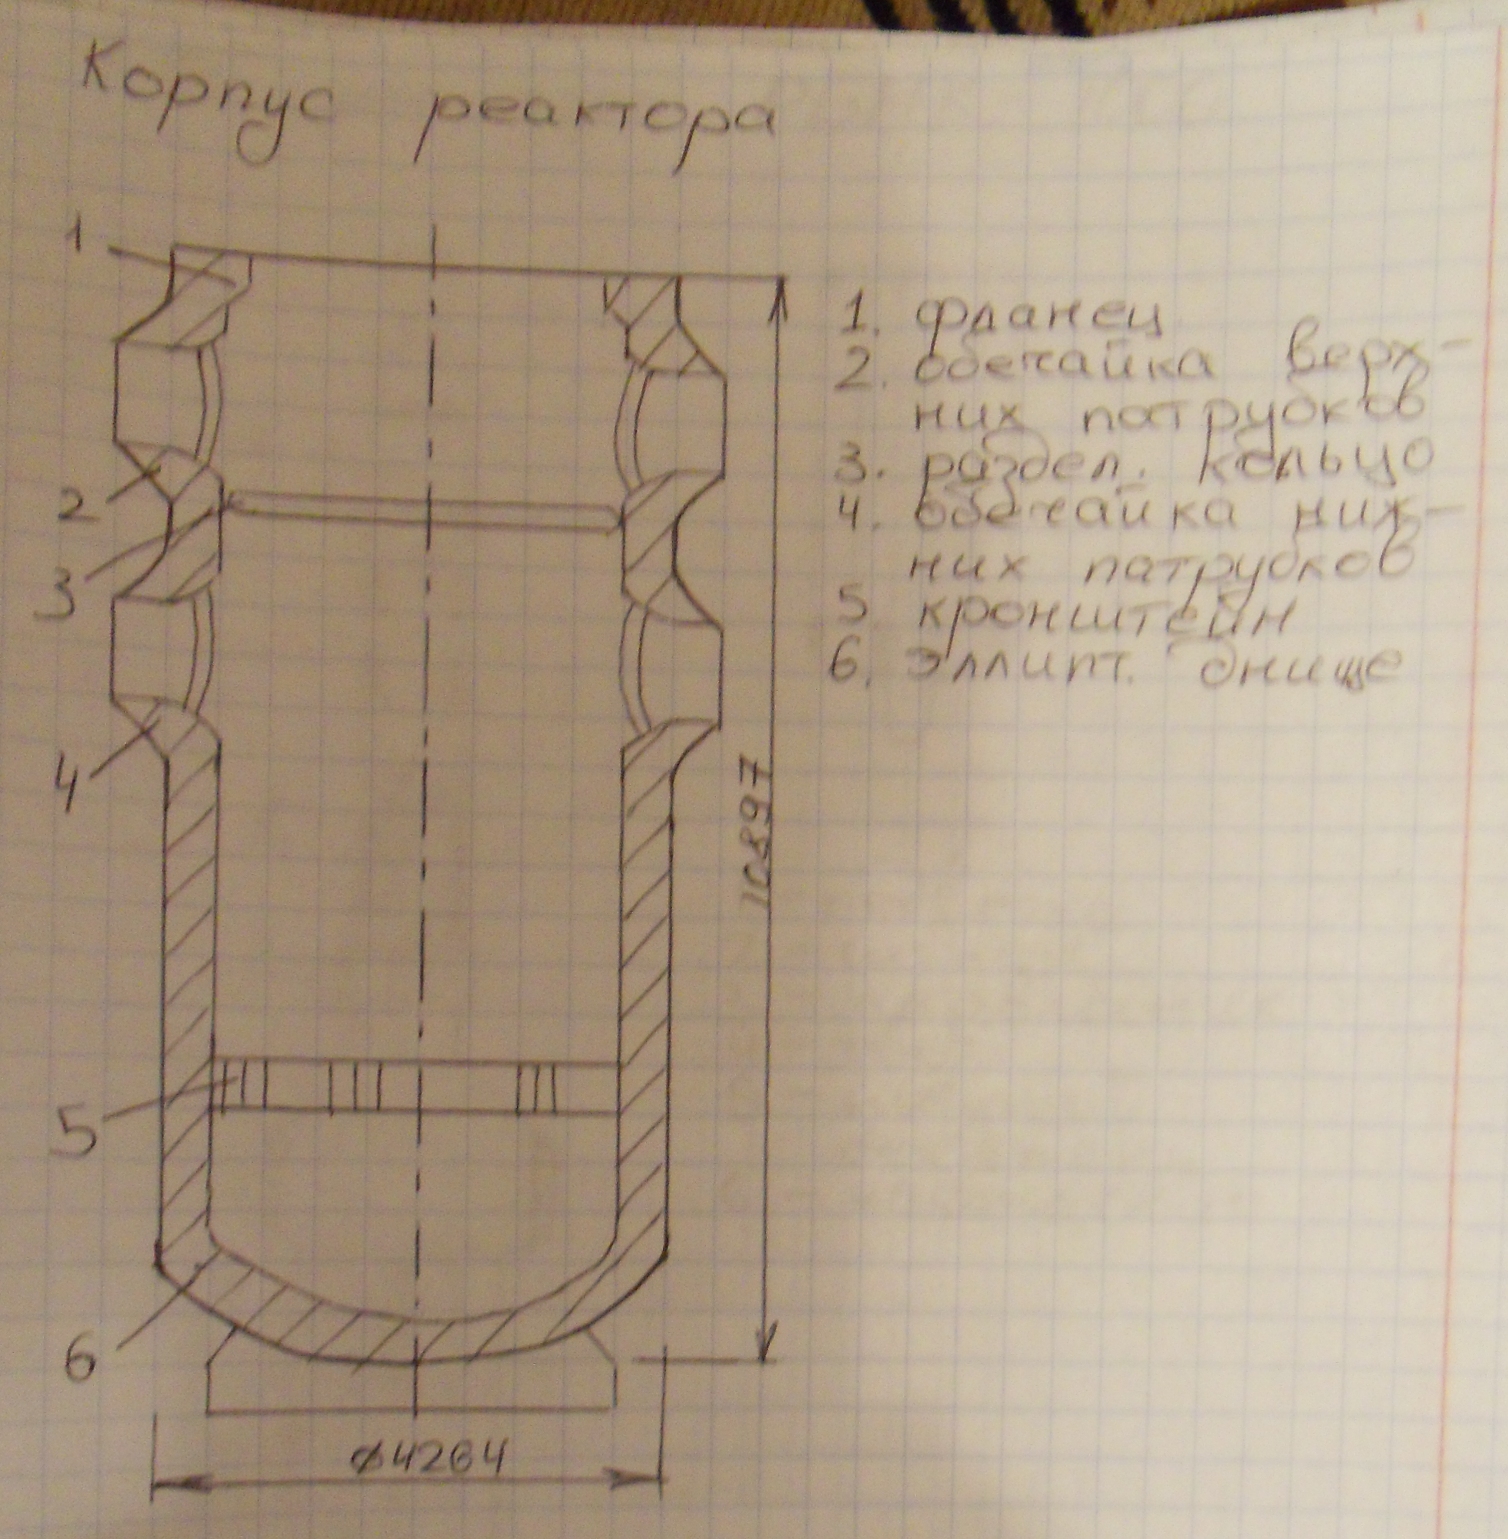 Корпус реактора
1
2
3
4
5
6
1. фланец
2. обечайка верх-
них патрубков
3. раздел. кольцо
4. обечайка ниж-
них патрубков
5 кронштейн
6. эллипт. днище
10897
⌀4264